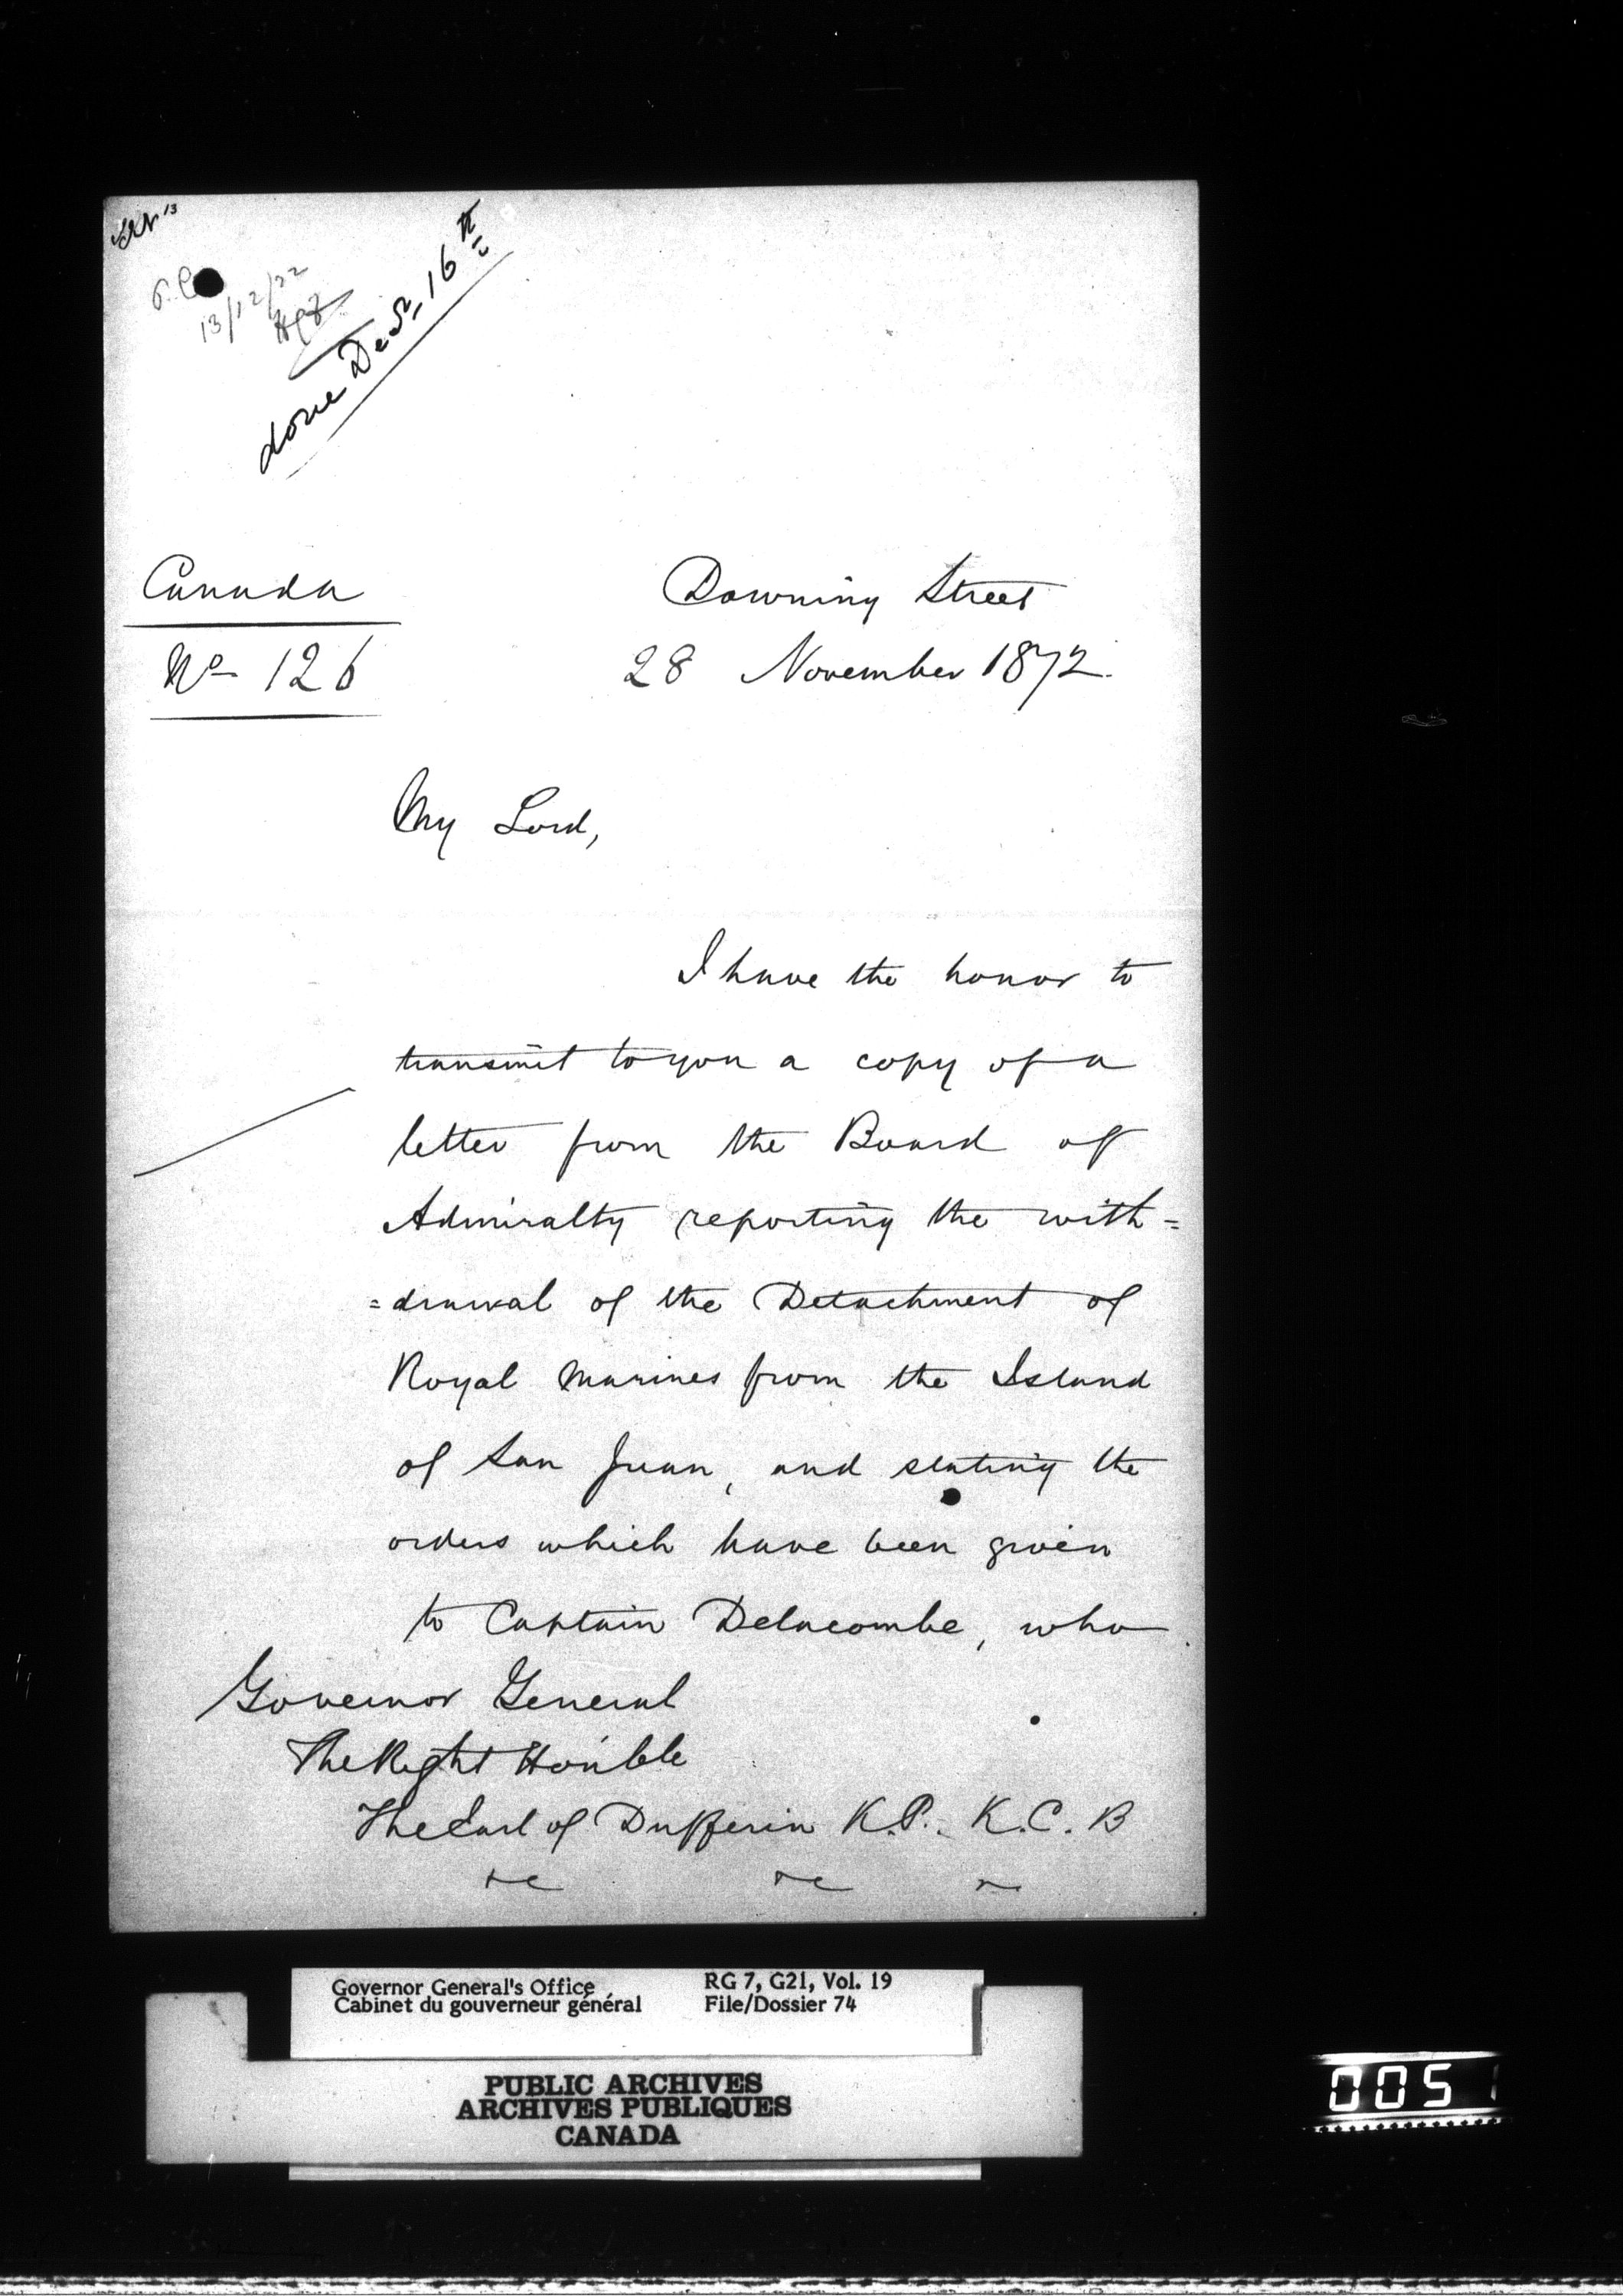 13/12/72
done Decr. 16th
Canada
No 126
Downing Street
28 November 1872.
My Lord,
I have the honor to
transmit to you a copy of a
letter from the Board of
Admiralty reporting the with=
=drawal of the Detachment of
Royal Marines from the Island
of San Juan, and stating the
orders which have been given
to Captain Delacombe, who
Governor General
The Right Honble
The Earl of Dufferin K.P. K.C.B
&c &c &c
Governor General's Office
Cabinet du gouverneur général
RG 7, G21, Vol. 19
File/Dossier 74
PUBLIC ARCHIVES
ARCHIVES PUBLIQUES
CANADA
005